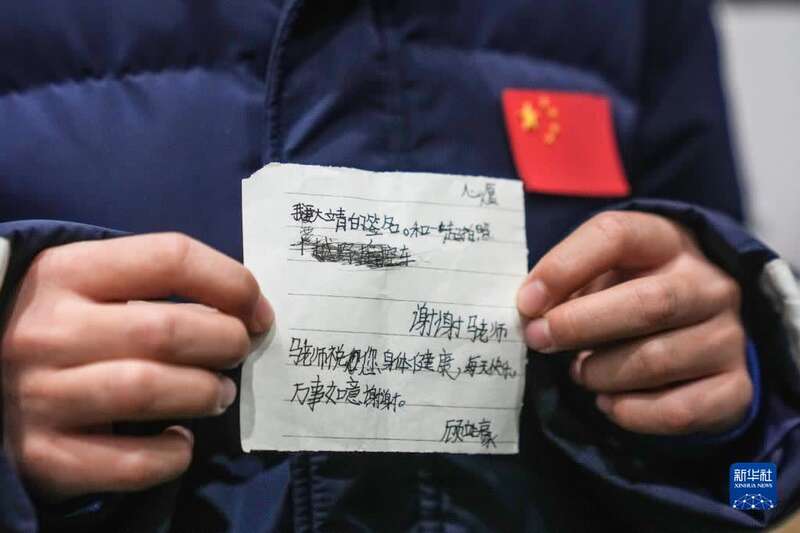 心愿
我要大靖的签名。和一起拍照
车
谢谢马老师
马老师祝您身体健康，每天快乐。
万事如意谢谢。
顾
豪
新华社
XINHUA NEWS